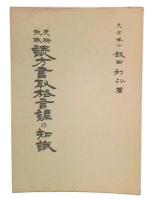 文学博士 飯田利行著
受験 就職 読方書取格言諺の知識